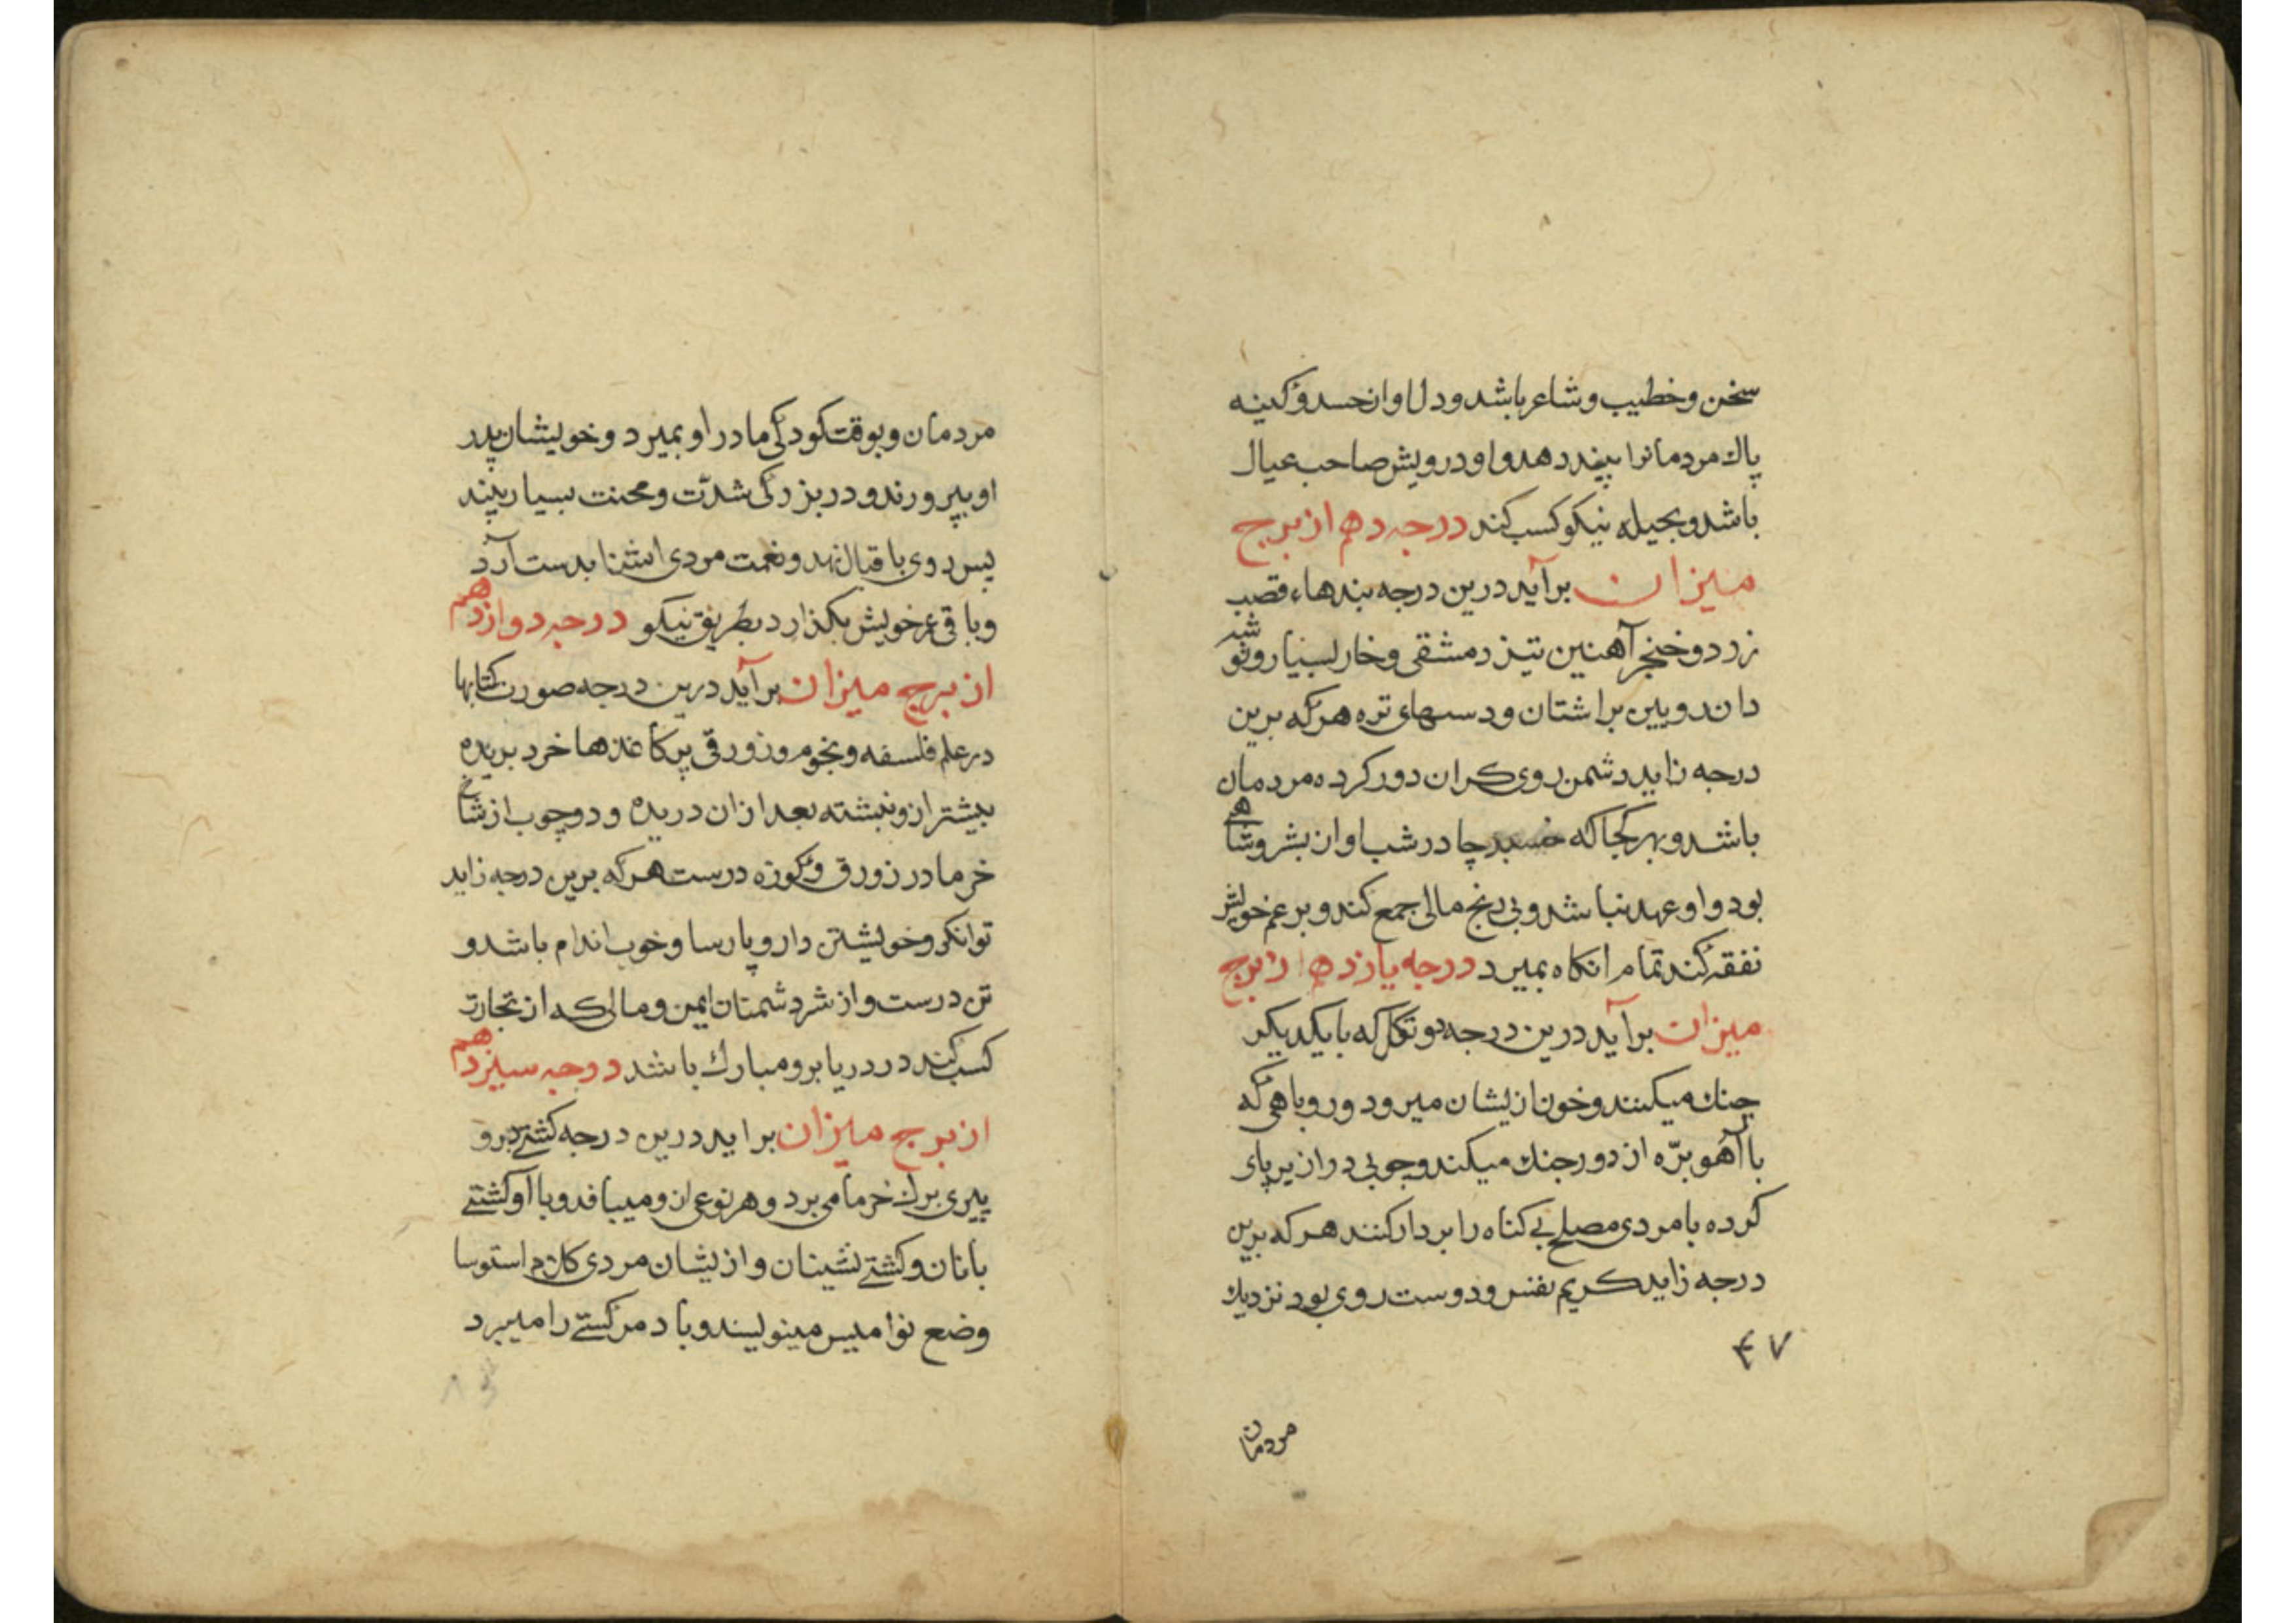 سخن وخطیب وشاعر باشد ودل او از حسد وکینه
پاك مردمانرا پند دهد واو درویش صاحب عیال
باشد وبحیله نیکو کسب کند درجه دهم از برج
میزان برآید درین درجه بندهاء قصب
زرد وخنجر آهنین تیز دمشقی وخار بسیار
براشتان ودستهای تره هرکه برین
درجه زاید دشمن روی کران دور کرده مردمان
باشد وبهر کجا که در شب او از
بود واو عهد نباشد وبی رنج مالی جمع کند وبر عم خویش
نفقه کند تمام انکاه بمیرد درجه یازدهم از برج
میزان برآید درین درجه دو که با یکدیکر
جنك میکنند وخون ازیشان میرود وروباهی که
با آهو برّه از دور جنك میکند وچوبی دراز بر پای
کرده با مردی مصلح بی کناه را بر دار کنند هرکه برین
درجه زاید کریم نفس ودوست روی بود نزدیك
۴۷
مردمان
مردمان وبوقت کودکی مادر او بمیرد وخویشان پدر
او بپرورند ودر بزرکی شدّت ومحنت بسیار بیند
پس روی باقبال نهد ونعمت مردی اشنا بدست آرد
وباقی عمر خویش بکذارد بطریق نیکو درجه دوازدهم
از برج میزان برآید درین درجه صورت کتابها
در علم فلسفه ونجوم وزورقی پر کاغذها خرد بریده
بیشتر ازو نبشته بعد ازان دریده ودو چوب از شاخ
خرما در زورق وکوزه درست هرکه برین درجه زاید
توانکر وخویشتن دار وپارسا وخوب اندام باشد و
تن درست واز شر دشمنان ایمن ومالی که از تجارت
کسب کند در دریا برو مبارك باشد درجه سیزدهم
از برج میزان براید درین درجه کشتی برو
پیری برك خرما می برد وهر نوعی ازو میبافد وبا او کشتی
بانان وکشتی نشینان وازیشان مردی
وضع نوامیس مینویسند وباد مر کشتی را میبرد